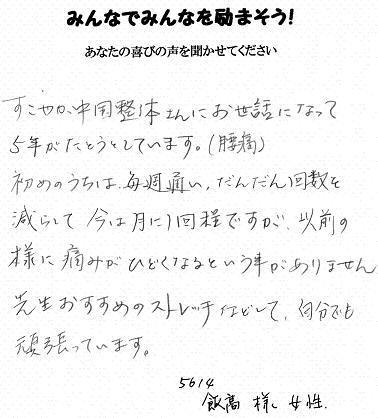 みんなでみんなを励まそう!
あなたの喜びの声を聞かせてください
すこやか中国整体さんにお世話になって
5年がたとうとしています。(腰痛)
初めのうちは、毎週通い、だんだん回数を
減らして 今は月に1回程ですが、以前の
様に痛みがひどくなるという事がありません
先生おすすめのストレッチなどして、自分でも
頑張っています。
5614
飯高 様 女性